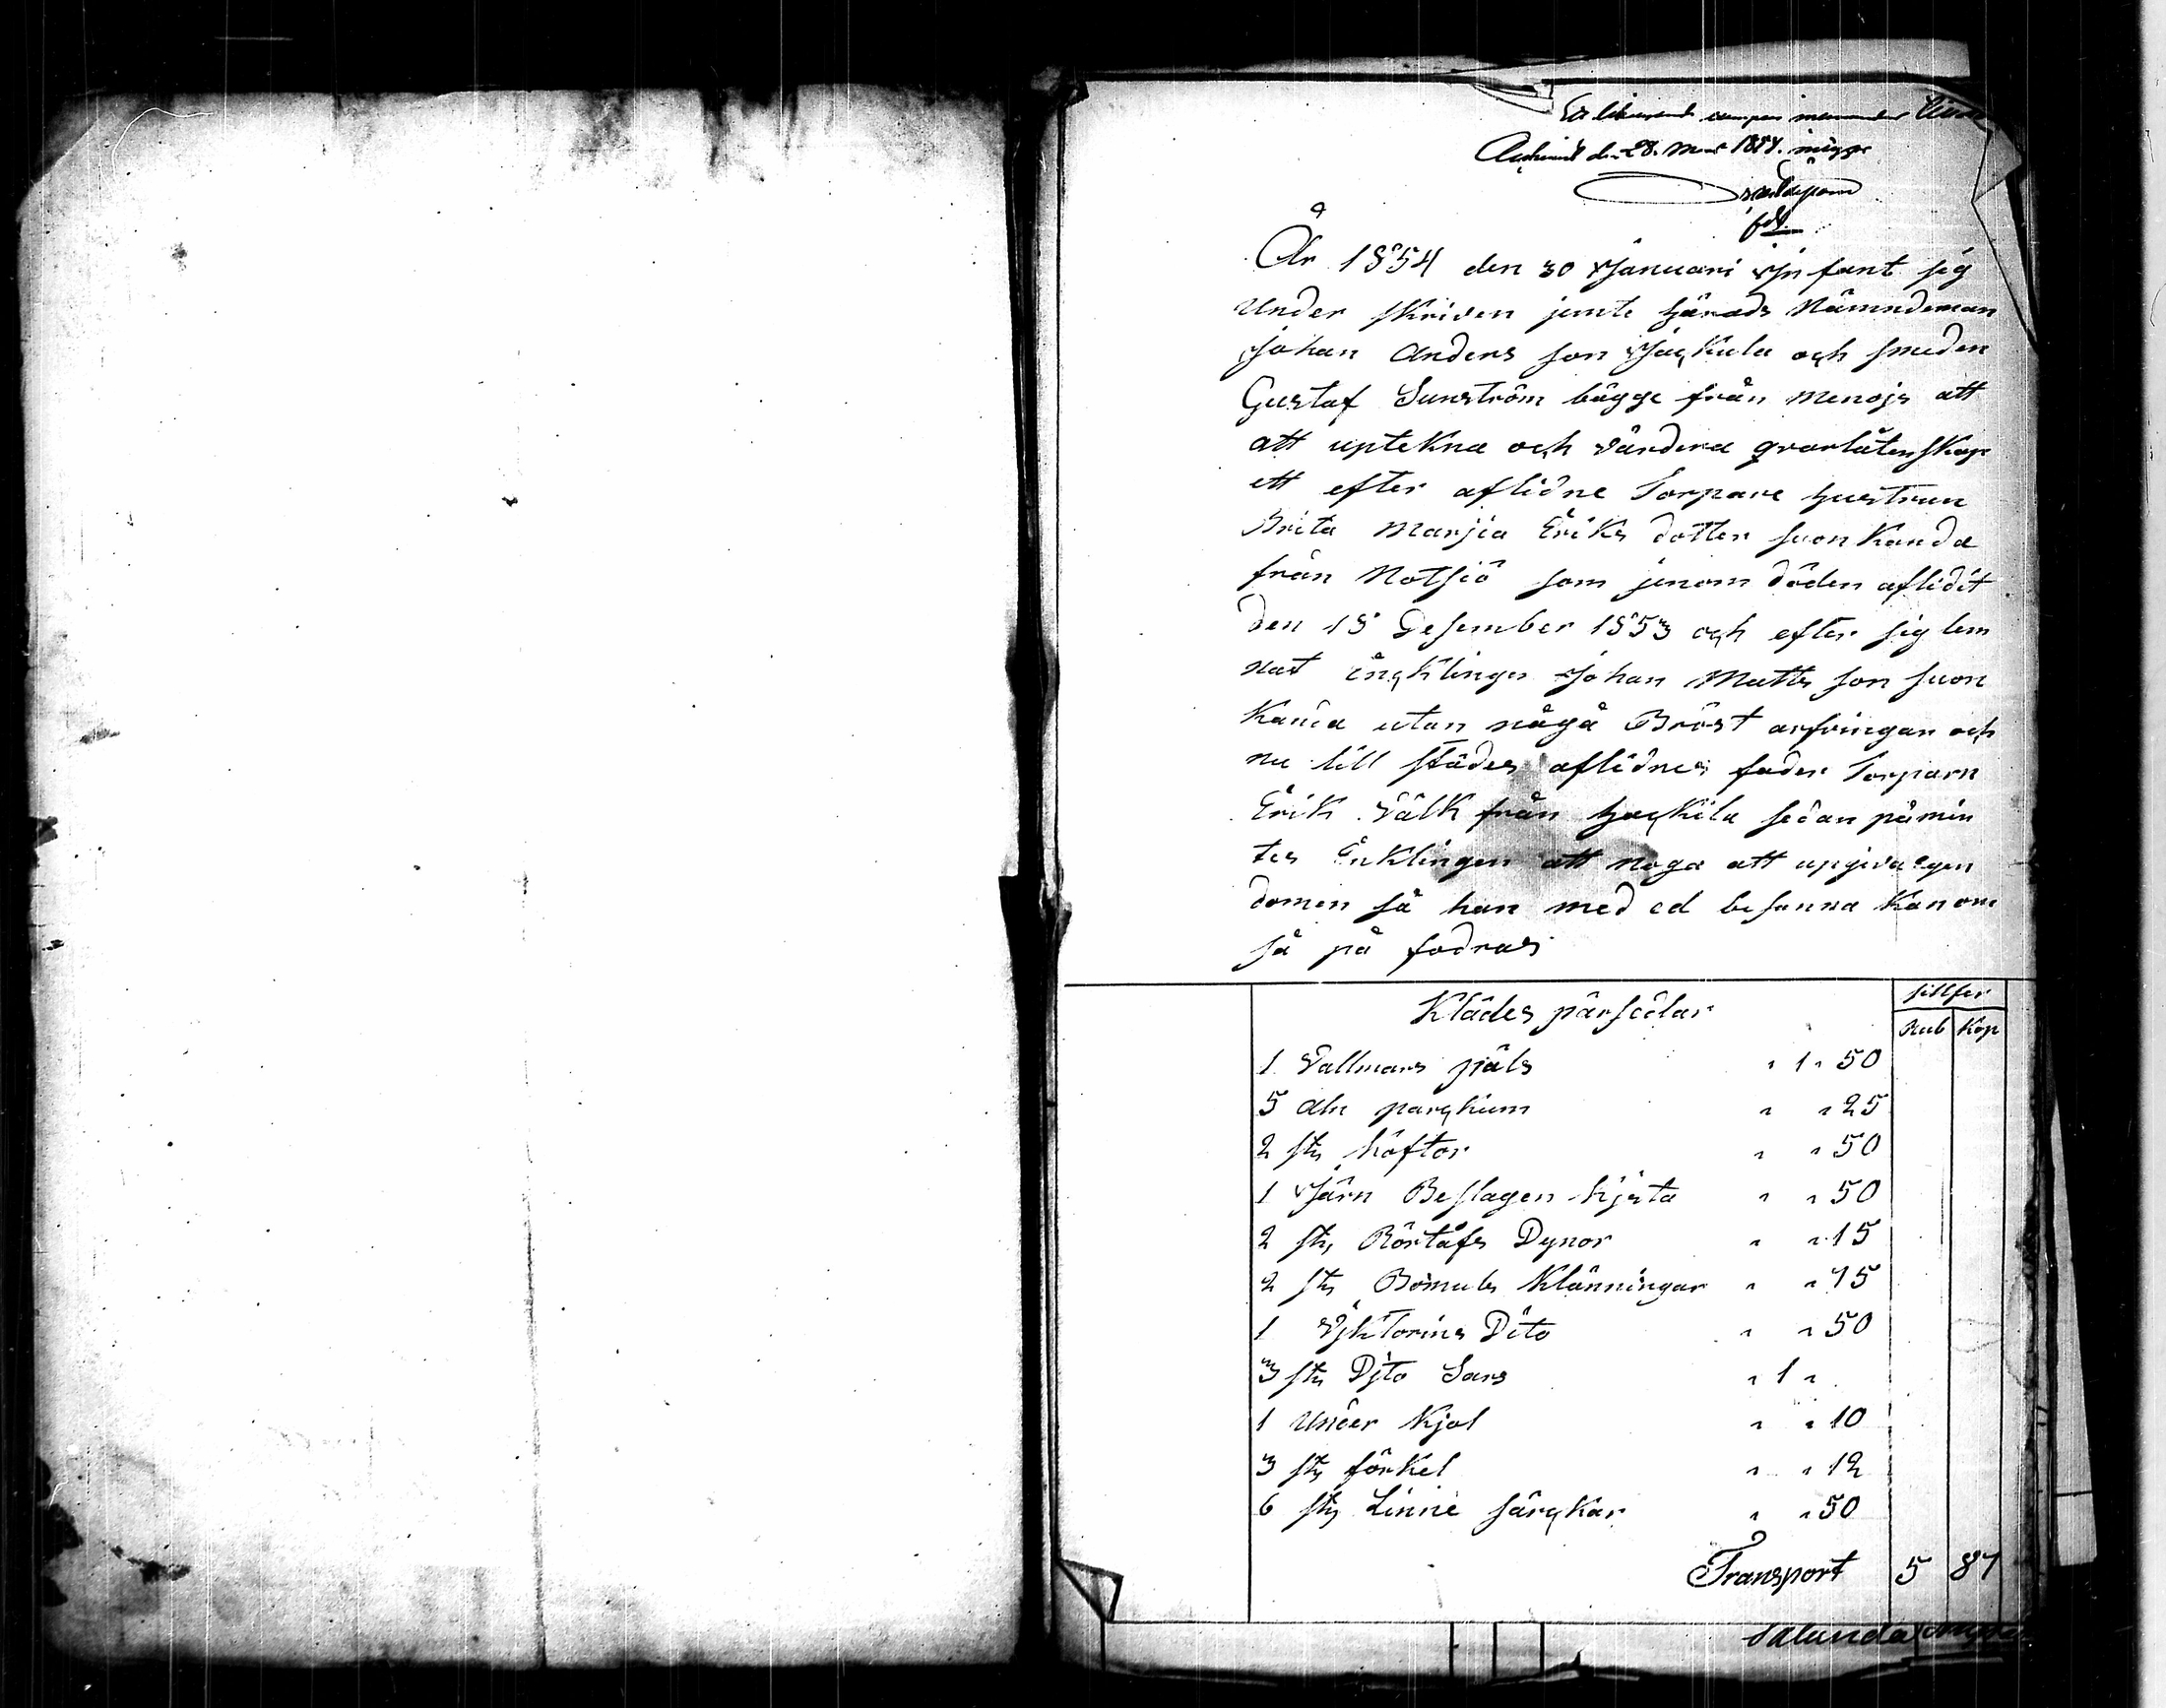 den 28. 1854.
År 1854 den 30 Januari Jn fant sig
Under skriven jemte härads Nämndeman
Johan Anders son Jackula och smeden
Gustaf Sunström bägge från Menojs att
att uptekna och värdera qvarlåtenskap
ett efter aflidne Torpare hustrun
Brita Marjia Eriks dotter suon Kanda
från Notsjö som jenom döden aflidit
den 18 Desember 1853 och efter sig lem
nat Enchlingen Johan Matts son suon
Kanda utan någå Bröst arfvingar och
nu till städes aflidnes fader Torparn
Erik Välk från hackila sedan påmin
tes Enklingen att noga att upgiva egen
domen så han med ed besanna kan om
så på fodras
Klädes pärsedlar
sillfer
Rub Kop
1 Vallmars pjäls " 1 " 50
5 aln parchum " " 25
2 st. köftor " " 50
1 Järn Beslagen kjsta " " 50
2 st. Börtåfs Dynor " " 15
2 st. Bomuls Klänningar " " 75
1 Vjktorins Dito " " 50
3 st. Djto Sars " 1 "
1 Under Kjol " " 10
3 st. förkel " " 12
6 st. Linne särckar " " 50
Transport 5 87